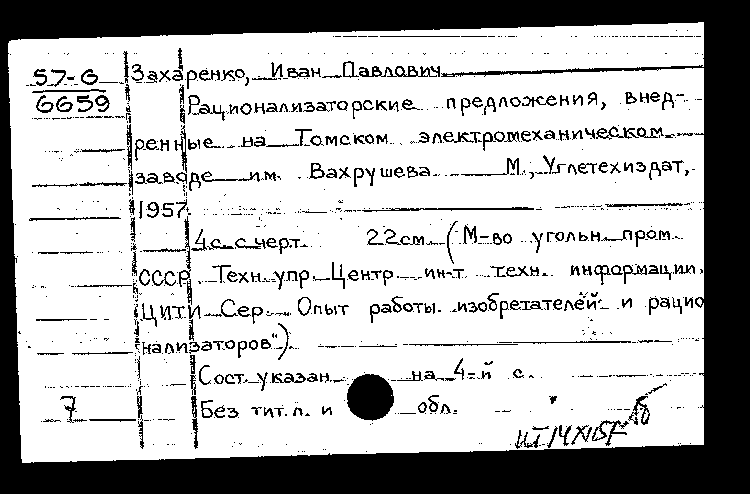 57-6 Захаренко, Иван Павлович
6659 Рационализаторские предложения, внед-
ренные на Томском электромеханическом
заводе им. Вахрушева М., Углетехиздат,
1957
4 с. с черт. 22 см. (М-во угольн. пром.
СССР. Техн. упр. Центр. ин-т техн. информации.
ЦИТИ Сер. Опыт работы изобретателей и рацио
нализаторов")
Сост. указан на 4-й с.
7 Без тит. л. и обл.